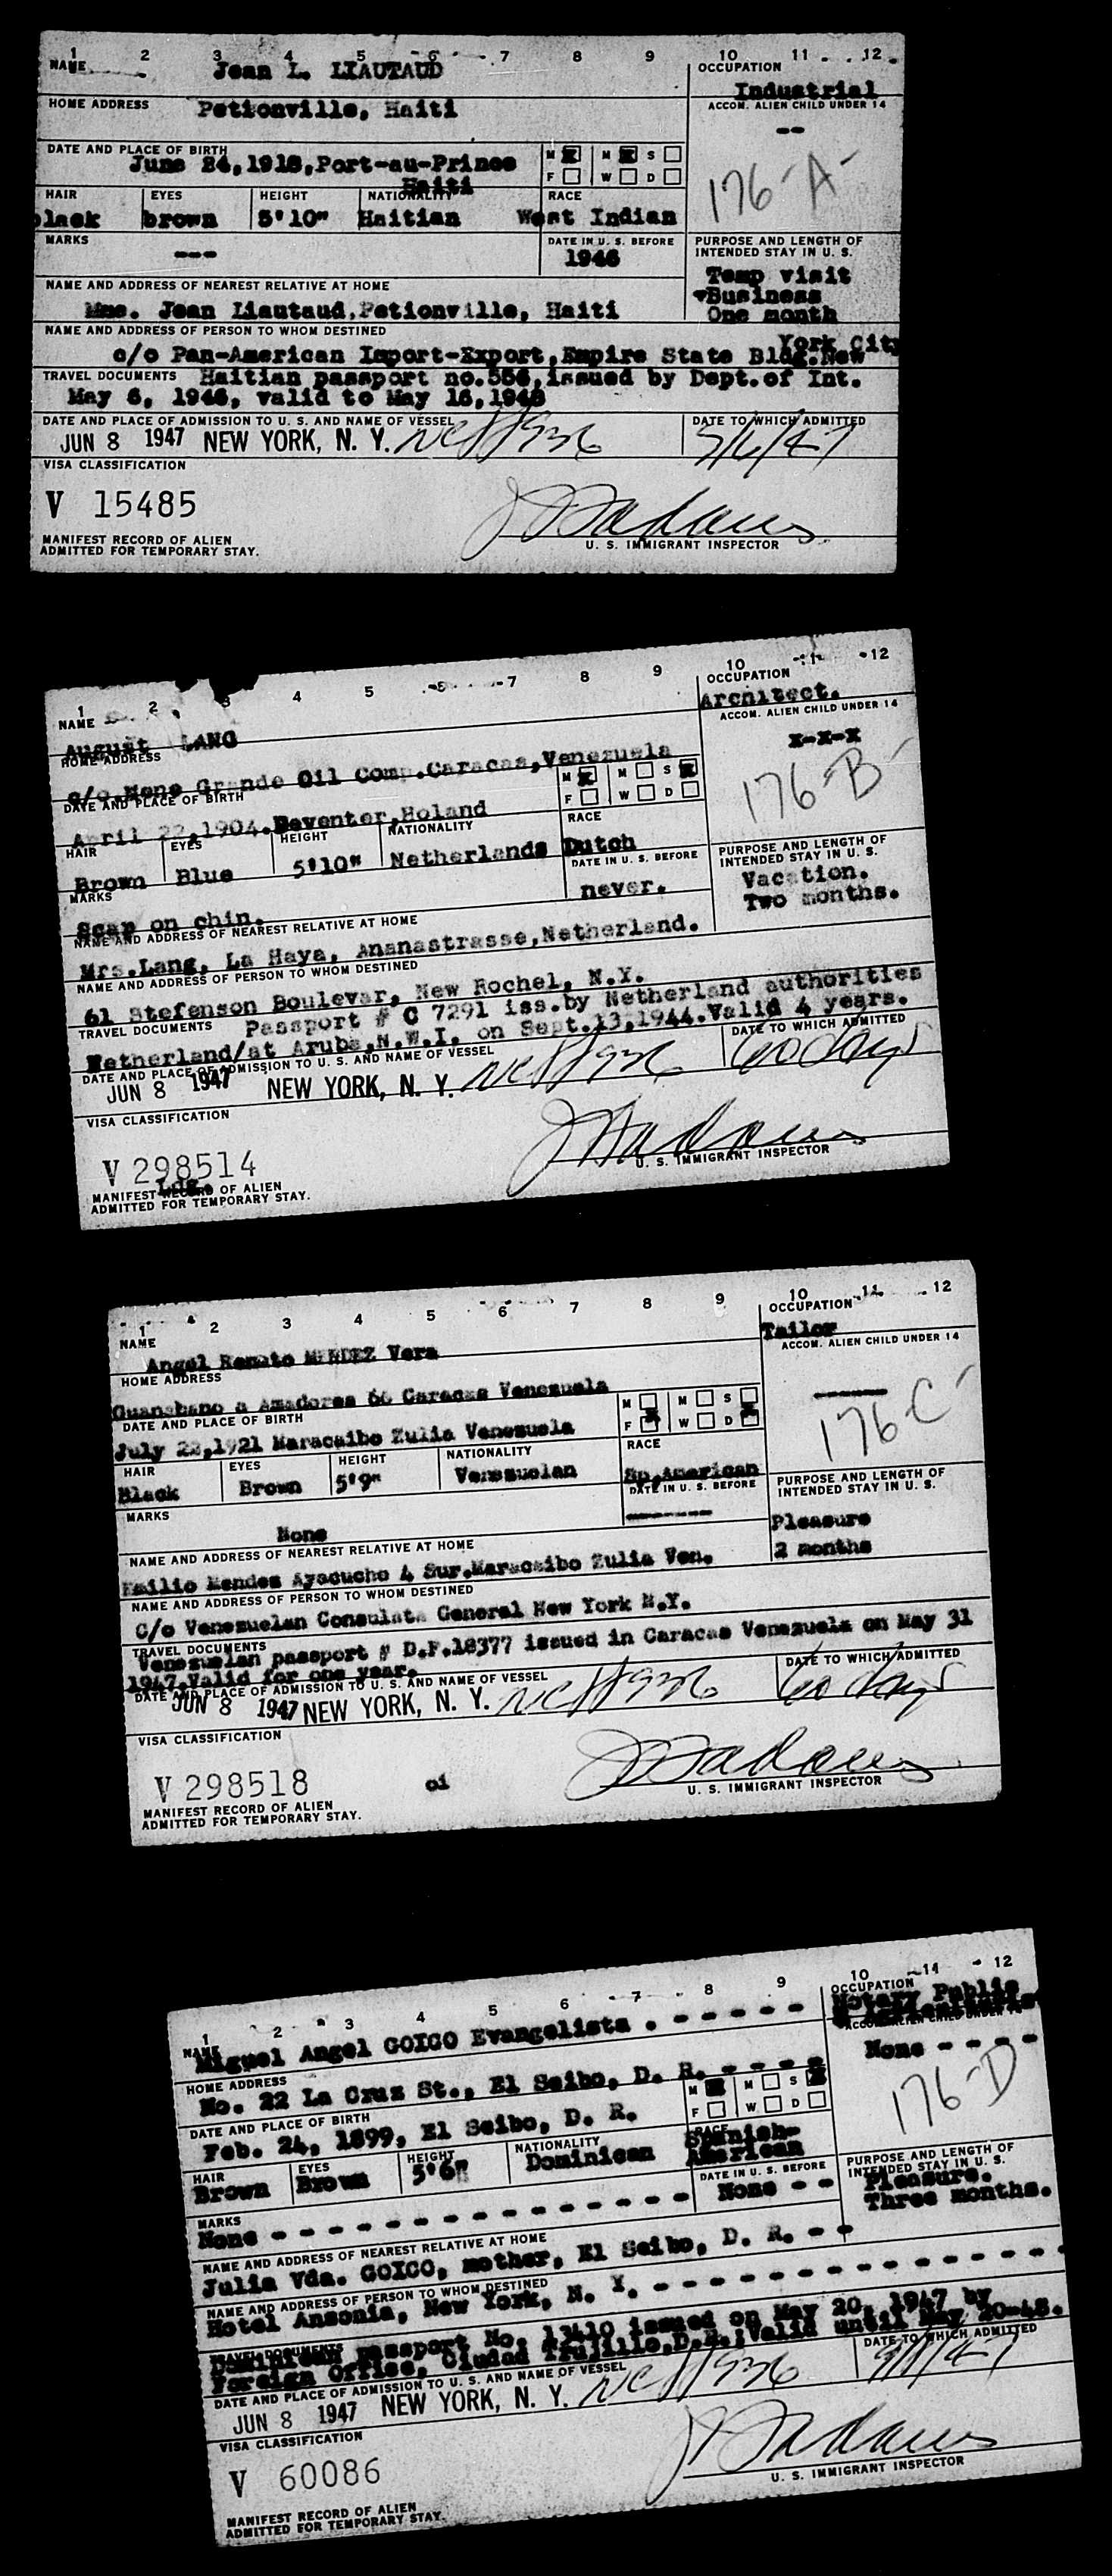 1 2 3 4 5 6 7 8 9 10 11 12
NAME Jean L. LIAUTAUD OCCUPATION Industrial
HOME ADDRESS Petionville, Haiti ACCOM. ALIEN CHILD UNDER 14
--
DATE AND PLACE OF BIRTH June 24, 1918, Port-au-Prince Haiti M X F M X S W D
176-A-
HAIR EYES HEIGHT NATIONALITY RACE
black brown 5'10" Haitian West Indian
MARKS --- DATE IN U. S. BEFORE 1946
PURPOSE AND LENGTH OF INTENDED STAY IN U. S.
Temp visit
Business
One month
NAME AND ADDRESS OF NEAREST RELATIVE AT HOME
Mme. Jean Liautaud, Petionville, Haiti
NAME AND ADDRESS OF PERSON TO WHOM DESTINED
c/o Pan-American Import-Export, Empire State Bldg. New York City
TRAVEL DOCUMENTS Haitian passport no.556, issued by Dept. of Int.
May 6, 1946, valid to May 16, 1948
DATE AND PLACE OF ADMISSION TO U. S. AND NAME OF VESSEL DATE TO WHICH ADMITTED
JUN 8 1947 NEW YORK, N. Y.
VISA CLASSIFICATION
V 15485
MANIFEST RECORD OF ALIEN
ADMITTED FOR TEMPORARY STAY.
U. S. IMMIGRANT INSPECTOR
1 2 3 4 5 6 7 8 9 10 11 12
NAME August LANG OCCUPATION Architect.
HOME ADDRESS ACCOM. ALIEN CHILD UNDER 14
c/o. Mene Grande Oil Comp. Caracas, Venezuela X-X-X
176-B-
DATE AND PLACE OF BIRTH M X F M S X W D
April 22, 1904. Deventer, Holand
HAIR EYES HEIGHT NATIONALITY RACE
Brown Blue 5'10" Netherlands Dutch
MARKS DATE IN U. S. BEFORE
Scar on chin. never.
PURPOSE AND LENGTH OF INTENDED STAY IN U. S.
Vacation.
Two months.
NAME AND ADDRESS OF NEAREST RELATIVE AT HOME
Mrs. Lang, La Haya, Ananastrasse, Netherland.
NAME AND ADDRESS OF PERSON TO WHOM DESTINED
61 Stefenson Boulevar, New Rochel, N.Y.
TRAVEL DOCUMENTS Passport # C 7291 iss. by Netherland authorities
Netherland/at Aruba, N.W.I. on Sept. 13, 1944. Valid 4 years.
DATE AND PLACE OF ADMISSION TO U. S. AND NAME OF VESSEL DATE TO WHICH ADMITTED
JUN 8 1947 NEW YORK, N. Y. 60 days
VISA CLASSIFICATION
V 298514
MANIFEST RECORD OF ALIEN
ADMITTED FOR TEMPORARY STAY.
U. S. IMMIGRANT INSPECTOR
1 2 3 4 5 6 7 8 9 10 11 12
NAME Angel Renato MENDEZ Vera OCCUPATION Tailor
HOME ADDRESS ACCOM. ALIEN CHILD UNDER 14
Guanabano a Amadores 66 Caracas Venezuela
176-C-
DATE AND PLACE OF BIRTH M F M S W D
July 22, 1921 Maracaibo Zulia Venezuela
HAIR EYES HEIGHT NATIONALITY RACE
Black Brown 5'9" Venezuelan Sp. American
MARKS None DATE IN U. S. BEFORE
PURPOSE AND LENGTH OF INTENDED STAY IN U. S.
Pleasure
2 months
NAME AND ADDRESS OF NEAREST RELATIVE AT HOME
Emilio Mendez Ayacucho 4 Sur. Maracaibo Zulia Ven.
NAME AND ADDRESS OF PERSON TO WHOM DESTINED
C/o Venezuelan Consulate General New York N.Y.
TRAVEL DOCUMENTS
Venezuelan passport # D.F.18377 issued in Caracas Venezuela on May 31
1947. Valid for one year.
DATE AND PLACE OF ADMISSION TO U. S. AND NAME OF VESSEL DATE TO WHICH ADMITTED
JUN 8 1947 NEW YORK, N. Y. 60 days
VISA CLASSIFICATION
V 298518 oi
MANIFEST RECORD OF ALIEN
ADMITTED FOR TEMPORARY STAY.
U. S. IMMIGRANT INSPECTOR
1 2 3 4 5 6 7 8 9 10 11 12
NAME Miguel Angel GOICO Evangelista . - - - - - OCCUPATION Notary Public
HOME ADDRESS ACCOM. ALIEN CHILD UNDER 14
No. 22 La Cruz St., El Seibo, D. R. - - - - None - - - -
176-D
DATE AND PLACE OF BIRTH M X F M S X W D
Feb. 24, 1899, El Seibo, D. R.
HAIR EYES HEIGHT NATIONALITY RACE
Brown Brown 5'6" Dominican Spanish-American
MARKS DATE IN U. S. BEFORE
None - - - - - - - - - - - - None - -
PURPOSE AND LENGTH OF INTENDED STAY IN U. S.
Pleasure.
Three months.
NAME AND ADDRESS OF NEAREST RELATIVE AT HOME
Julia Vda. GOICO, mother, El Seibo, D. R. - -
NAME AND ADDRESS OF PERSON TO WHOM DESTINED
Hotel Ansonia, New York, N. Y. - - - - - - - - - - - - -
TRAVEL DOCUMENTS
Dominican passport No. 13410 issued on May 20, 1947 by
Foreign Office, Ciudad Trujillo, D.R.; Valid until May 20-48.
DATE AND PLACE OF ADMISSION TO U. S. AND NAME OF VESSEL DATE TO WHICH ADMITTED
JUN 8 1947 NEW YORK, N. Y.
VISA CLASSIFICATION
V 60086
MANIFEST RECORD OF ALIEN
ADMITTED FOR TEMPORARY STAY.
U. S. IMMIGRANT INSPECTOR